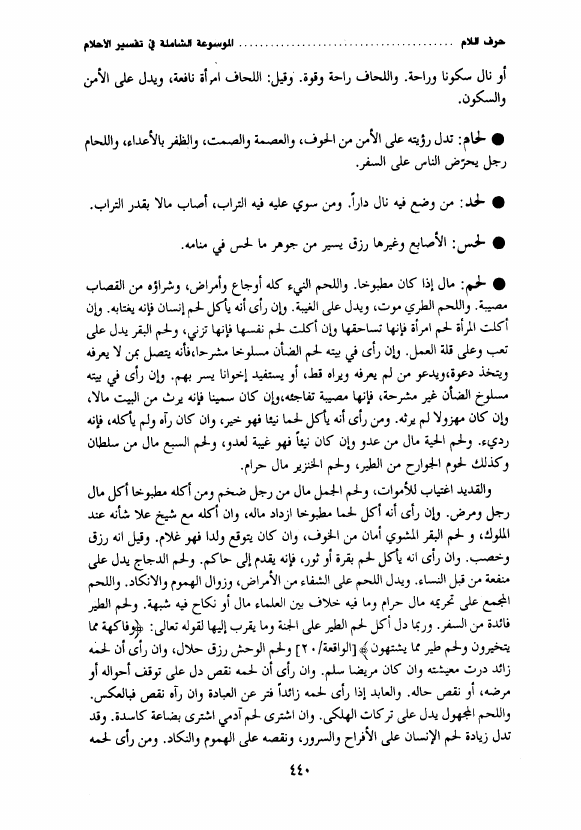 حرف اللام ........................................ الموسوعة الشاملة في تفسير الأحلام
أو نال سكونا وراحة. واللحاف راحة وقوة. وقيل: اللحاف امرأة نافعة، ويدل على الأمن
والسكون.
● لحام: تدل رؤيته على الأمن من الخوف، والعصمة والصمت، والظفر بالأعداء، واللحام
رجل يحرّض الناس على السفر.
● لحد: من وضع فيه نال داراً. ومن سوي عليه فيه التراب، أصاب مالا بقدر التراب.
● لحس: الأصابع وغيرها رزق يسير من جوهر ما لحس في منامه.
● لحم: مال إذا كان مطبوخا. واللحم النيء كله أوجاع وأمراض، وشراؤه من القصاب
مصيبة. واللحم الطري موت، ويدل على الغيبة. وإن رأى أنه يأكل لحم إنسان فإنه يغتابه. وإن
أكلت المرأة لحم امرأة فإنها تساحقها وإن أكلت لحم نفسها فإنها تزني، ولحم البقر يدل على
تعب وعلى قلة العمل. وإن رأى في بيته لحم الضأن مسلوخا مشرحا،فأنه يتصل بمن لا يعرفه
ويتخذ دعوة،ويدعو من لم يعرفه ويراه قط، أو يستفيد إخوانا يسر بهم. وإن رأى في بيته
مسلوخ الضأن غير مشرحة، فإنها مصيبة تفاجئه،وإن كان سمينا فإنه يرث من البيت مالا،
وإن كان مهزولا لم يرثه. ومن رأى أنه يأكل لحما نيئا فهو خير، وان كان رآه ولم يأكله، فإنه
رديء. ولحم الحية مال من عدو وإن كان نيئاً فهو غيبة لعدو، ولحم السبع مال من سلطان
وكذلك لحوم الجوارح من الطير، ولحم الخنزير مال حرام.
والقديد اغتياب للأموات، ولحم الجمل مال من رجل ضخم ومن أكله مطبوخا أكل مال
رجل ومرض. وإن رأى أنه أكل لحما مطبوخا ازداد ماله، وان أكله مع شيخ علا شأنه عند
الملوك، و لحم البقر المشوي أمان من الخوف، وان كان يتوقع ولدا فهو غلام. وقيل انه رزق
وخصب. وان رأى انه يأكل لحم بقرة أو ثور، فإنه يقدم إلى حاكم. ولحم الدجاج يدل على
منفعة من قبل النساء. ويدل اللحم على الشفاء من الأمراض، وزوال الهموم والانكاد. واللحم
المجمع على تحريمه مال حرام وما فيه خلاف بين العلماء مال أو نكاح فيه شبهة. ولحم الطير
فائدة من السفر. وربما دل أكل لحم الطير على الجنة وما يقرب إليها لقوله تعالى: ﴿وفاكهة مما
يتخيرون ولحم طير مما يشتهون﴾ [الواقعة/٢٠] ولحم الوحش رزق حلال، وان رأى أن لحمه
زائد درت معيشته وان كان مريضا سلم. وان رأى أن لحمه نقص دل على توقف أحواله أو
مرضه، أو نقص حاله. والعابد إذا رأى لحمه زائداً فتر عن العبادة وان رآه نقص فبالعكس.
واللحم المجهول يدل على تركات الهلكى. وان اشترى لحم آدمي اشترى بضاعة كاسدة. وقد
تدل زيادة لحم الإنسان على الأفراح والسرور، ونقصه على الهموم والنكاد. ومن رأى لحمه
٤٤٠